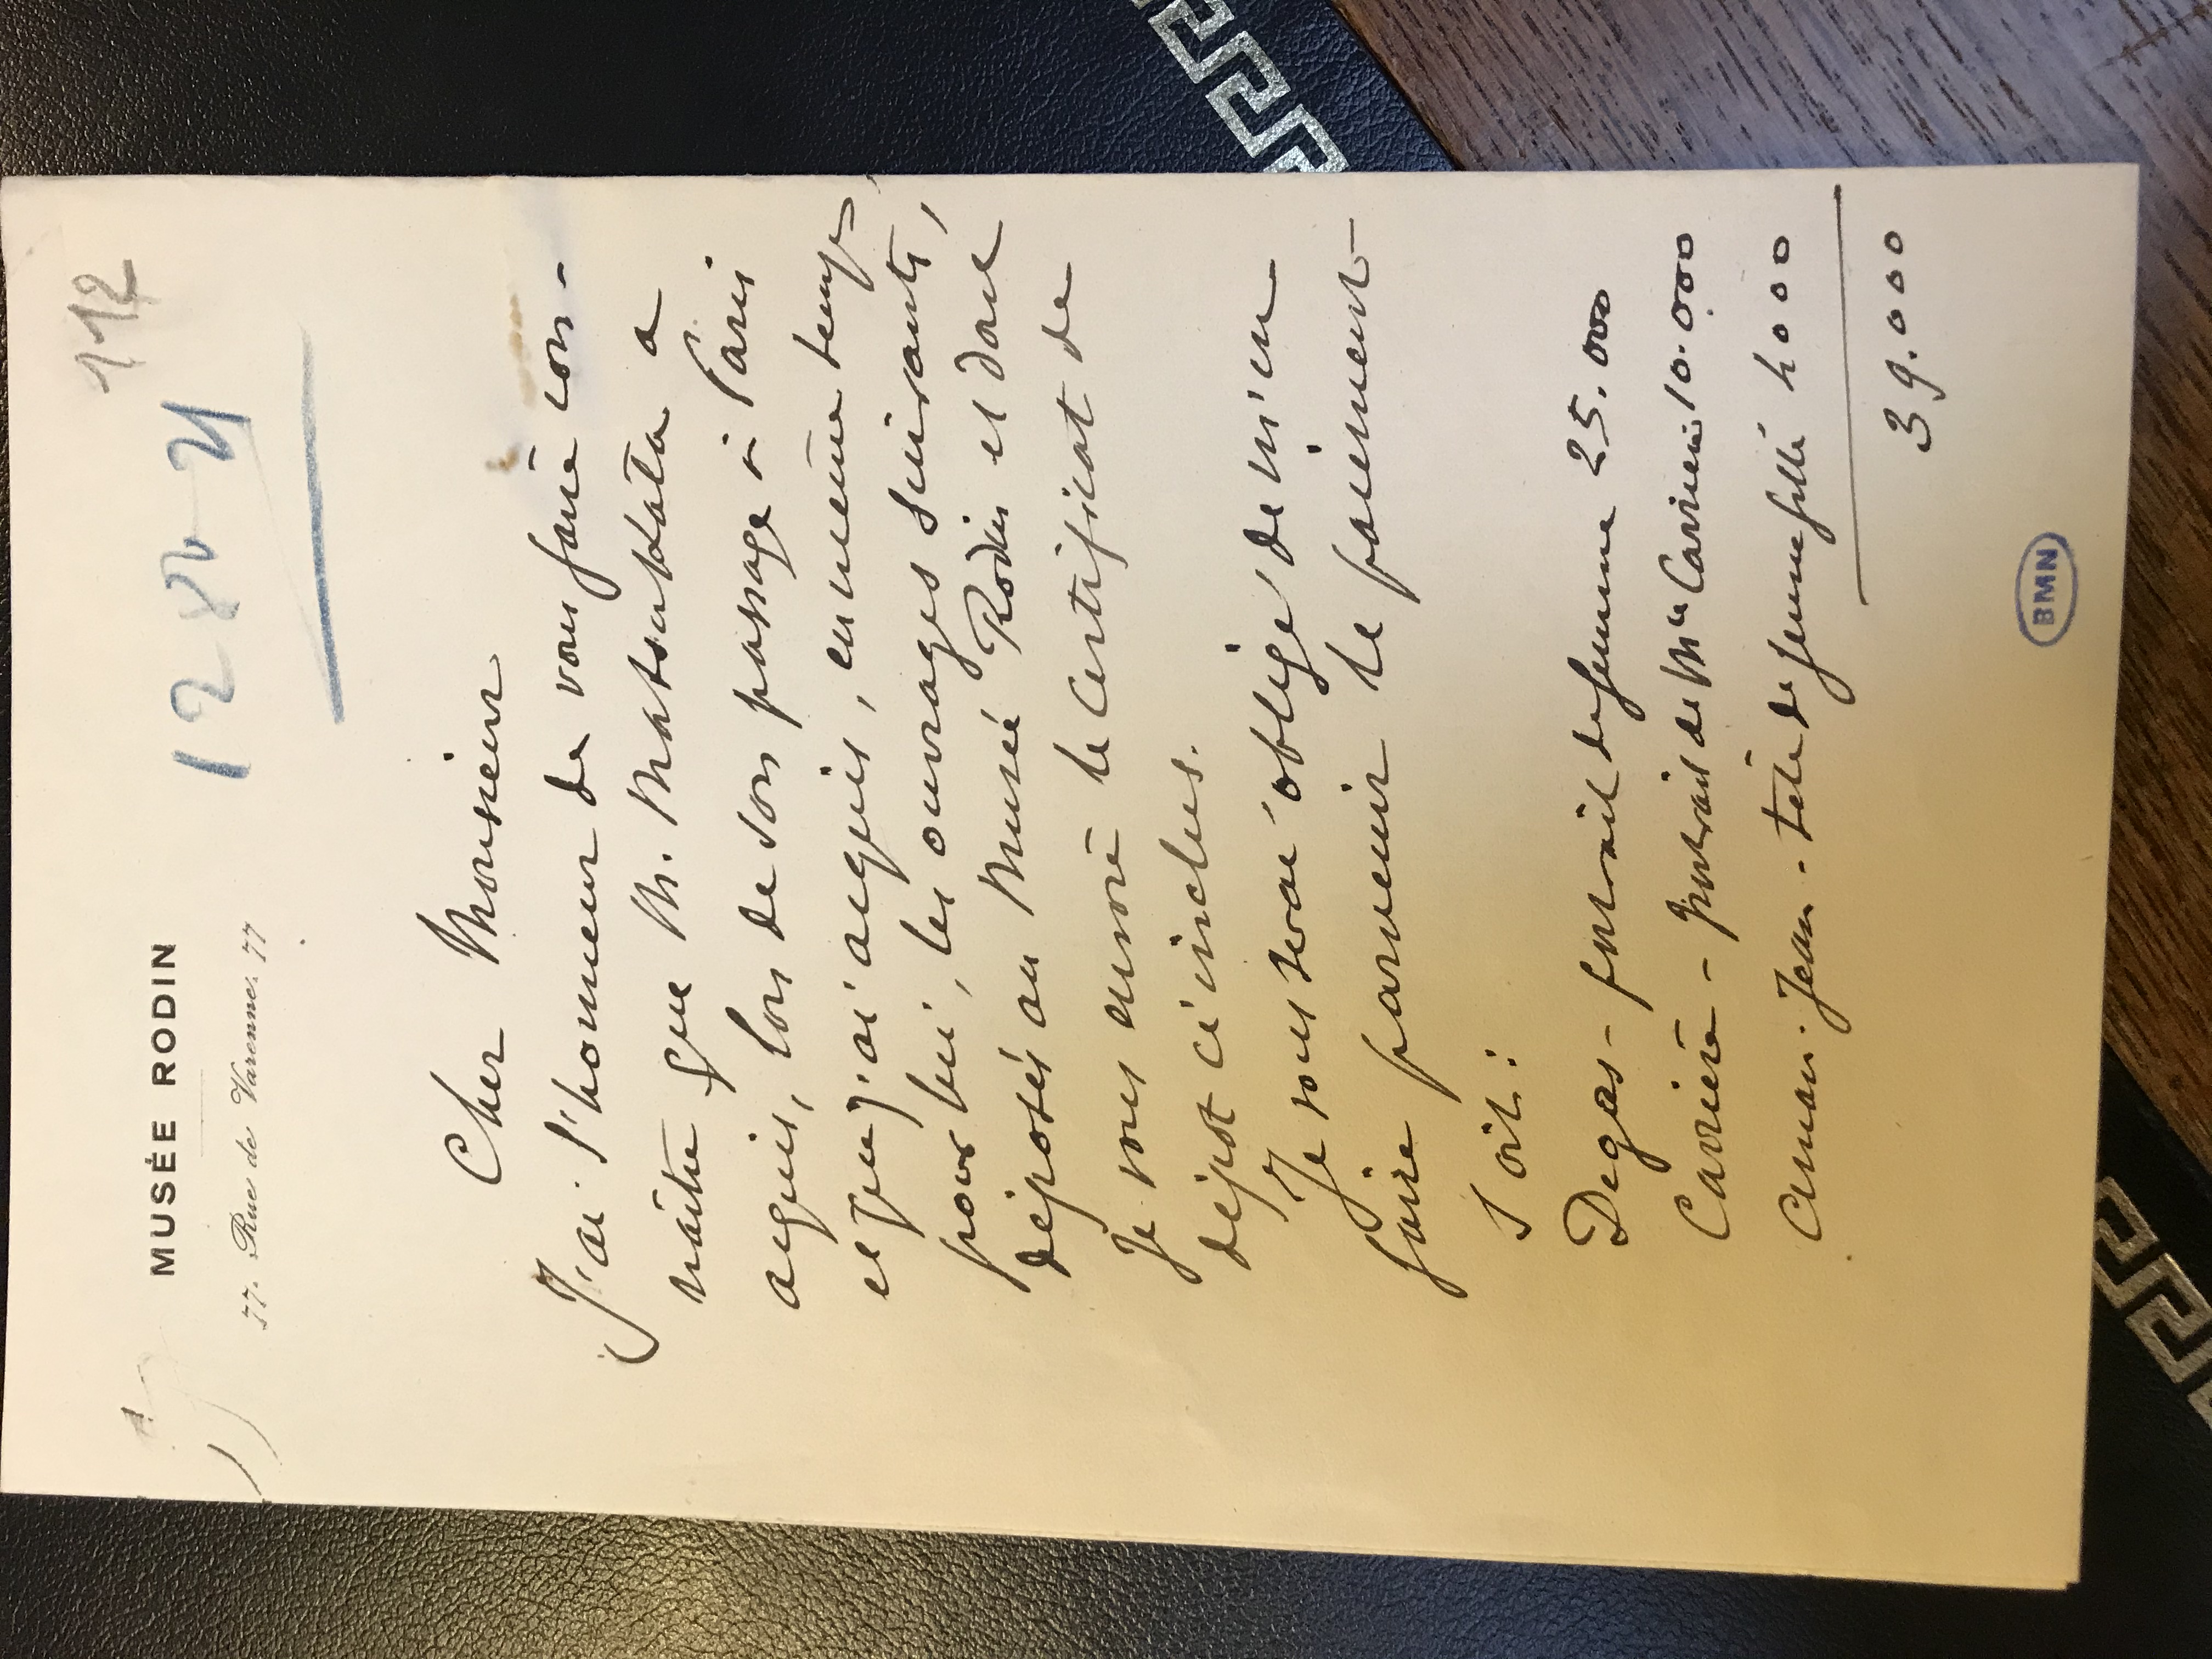 112
MUSÉE RODIN
77, Rue de Varenne, 77
12 21
Cher Monsieur
J'ai l'honneur de vous faire con-
naître que M. Matsukata a
acquis, lors de son passage à Paris
et que j'ai acquis, en même temps
pour lui, les ouvrages suivants,
déposés au Musée Rodin et dont
je vous envoie le certificat de
dépot ci inclus.
Je vous serai obligé de m'en
faire parvenir le paiement
soit :
Degas - portrait de femme 25.000
Carrière - portrait de Me Carrière 10.000
Aman-Jean - tête de jeune fille 4000
39.000
BMN